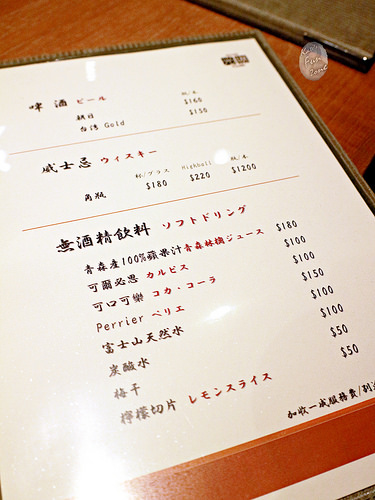 啤酒 ビール 瓶/本
朝日 $160
台湾 Gold $150
威士忌 ウィスキー 杯/グラス Highball 瓶/本
角瓶 $180 $220 $1200
無酒精飲料 ソフトドリンク
青森産100%蘋果汁 青森林檎ジュース $180
可爾必思 カルピス $100
可口可樂 コカ・コーラ $100
Perrier ペリエ $150
富士山天然水 $100
炭酸水 $100
梅干 $50
檸檬切片 レモンスライス $50
加收一成服務費/別途